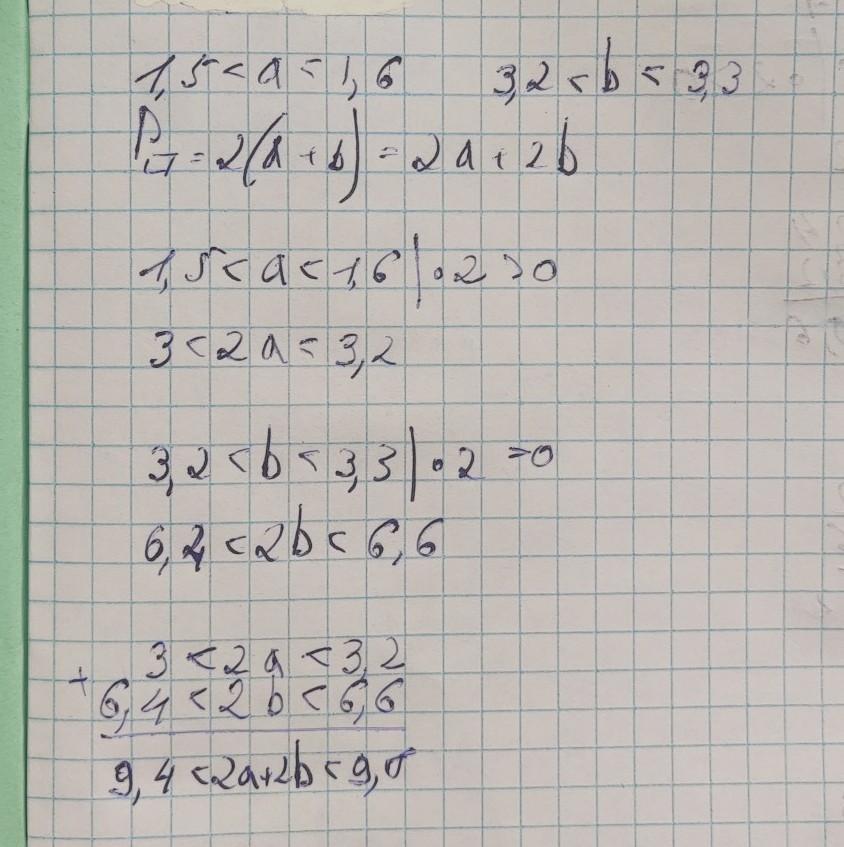 1,5 < a < 1,6 3,2 < b < 3,3
P▭ = 2(a + b) = 2a + 2b
1,5 < a < 1,6 | • 2 > 0
3 < 2a < 3,2
3,2 < b < 3,3 | • 2 > 0
6,4 < 2b < 6,6
3 < 2a < 3,2
+ 6,4 < 2b < 6,6
9,4 < 2a+2b < 9,8